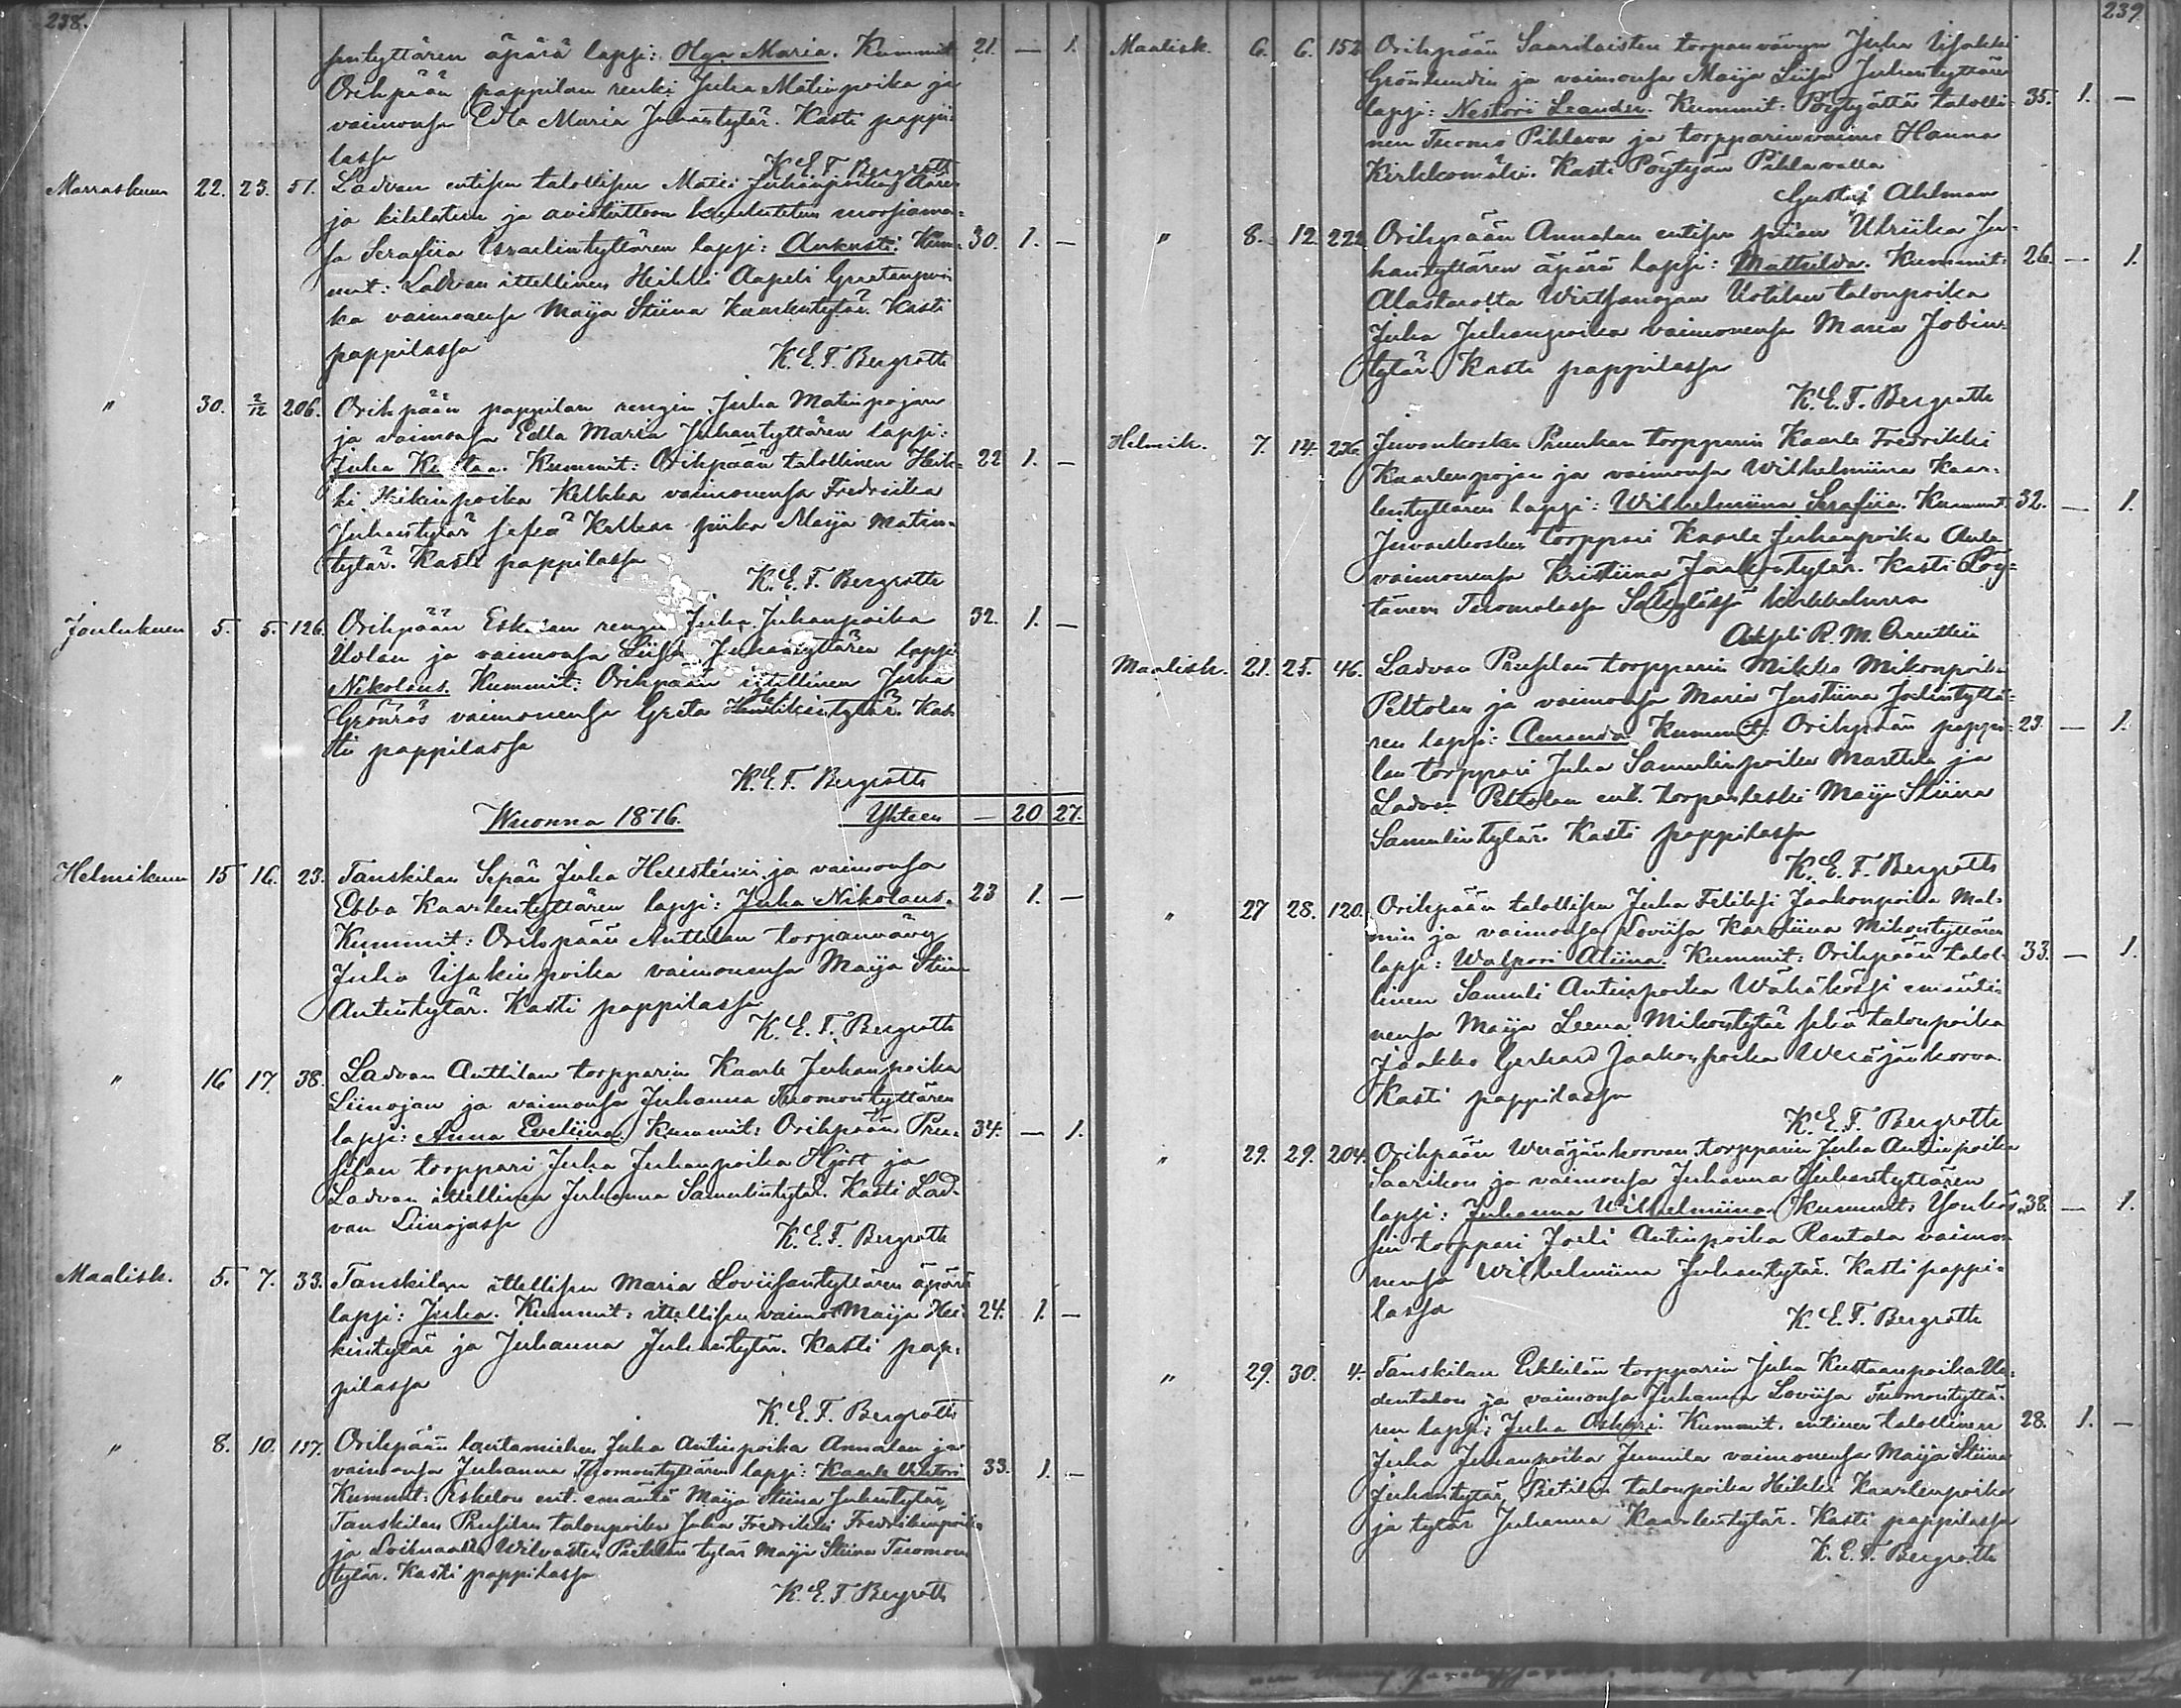 238.
sentyttären äpärä lapsi: Olga Maria. Kummit 21. — 1.
Orihpään pappilan renki Juha Matinpoika ja
vaimonsa Edla Maria Juhantytär. Kasti pappi-
lassa
K. E. F. Bergroth
Marraskuun 22. 23. 51. Ladvan entisen talollisen Matti Juhanpoika
ja kihlatun ja avioliittoon morsiamen-
sa Serafiia Israelintyttären lapsi: Aukusti. Kum- 30. 1. —
mit: Ladvan ittellinen Heikki Aapeli Gretanpoi-
ka vaimonensa Maija Stiina Kaarlentytär. Kasti
pappilassa
K. E. F. Bergroth
" 30. 2/12 206. Orihpään pappilan rengin Juha Matinpojan
ja vaimonsa Edla Maria Juhantyttären lapsi:
Juha Kustaa. Kummit: Orihpään talollinen Heik- 22 1. —
ki Heikinpoika Kelkka vaimonensa Fredriika
Juhantytär sekä Kelkan piika Maija Matin-
tytär. Kasti pappilassa
K. E. F. Bergroth
Joulukuun 5. 5. 126. Orihpään Eskolan rengin Juha Juhanpoika 32. 1. —
Uolan ja vaimonsa Liisa Juhantyttären lapsi
Nikolaus. Kummit: Orihpään ittellinen Juha
Grönros vaimonensa Greta Heikintytär. Kas-
ti pappilassa
K. E. F. Bergroth
Wuonna 1876. Yhteen — 20 27.
Helmikuun 15 16. 23. Tanskilan Sepän Juha Hellsténin ja vaimonsa
Ebba Kaarlentyttären lapsi: Juha Nikolaus. 23 1. —
Kummit: Orihpään Anttilan torpanvävy
Juha Iisakinpoika vaimonensa Maija Stiina
Antintytär. Kasti pappilassa
K. E. F. Bergroth
" 16 17. 38. Ladvan Anttilan torpparin Kaarle Juhanpoika
Liinojan ja vaimonsa Juhanna Tuomontyttären
lapsi: Anna Eveliina. Kummit: Orihpään Pru- 34. — 1.
silan torppari Juha Juhanpoika Hjort ja
Ladvan ittellinen Juhanna Samulintytär. Kasti Lad-
van Liinojassa
K. E. F. Bergroth
Maalisk. 5. 7. 33. Tanskilan ittellisen Maria Loviisantyttären äpärä
lapsi: Juha. Kummit: ittellisen vaimo Maija Hei- 24. 1. —
kintytär ja Juhanna Juhantytär. Kasti pap-
pilassa
K. E. F. Bergroth
" 8. 10. 137. Orihpään lautamiehen Juha Antinpoika Annalan ja
vaimonsa Juhanna Tuomontyttären lapsi: Kaarle Viktori 33. 1. —
Kummit: Eskolan ent. emäntä Maija Stiina Juhantytär,
Tanskilan Prusilan talonpoika Juha Fredrikki Fredrikinpoika
ja Loimaalta Pietilän tytär Maija Stiina Tuomon-
tytär. Kasti pappilassa
K. E. F. Bergroth
239
Maalisk. 6. 6. 152 Orihpään Saarilaisten torpanvävyn Juha Iisakki
Grönlundin ja vaimonsa Maija Liisa Juhantyttären
lapsi: Nestori Leander. Kummit: Pöytyältä talolli- 35. 1. —
nen Tuomo Pihlava ja torpparin vaimo Hanna
Kirkkomäki. Kasti Pöytyän Pihlavalla
Gustaf Ahlman
" 8. 12. 222 Orihpään Annalan entisen piian Ulriika Ju-
hantyttären äpärä lapsi: Mathilda. Kummit: 26. — 1.
Alastarolta Wirtsanojan Uotilan talonpoika
Juha Juhanpoika vaimonensa Maria Jobin-
tytär. Kasti pappilassa
K. E. F. Bergroth
Helmik. 7. 14. 236. Juvankosken Prunkan torpparin Kaarle Fredrikki
Kaarlenpojan ja vaimonsa Wilhelmiina Kaar-
lentyttären lapsi: Wilhelmiina Serafiia. Kummit: 32. — 1.
Juvankosken torppari Kaarle Juhanpoika
vaimonensa Kristiina Jaakontytär. Kasti Pöy-
tänen Tuomolassa Säkylässä
R. M.
Maalisk. 21. 25. 46. Ladvan Prusilan torpparin Mikko Mikonpoika
Peltolan ja vaimonsa Maria Justiina Joelintyttä-
ren lapsi: Amanda. Kummit: Orihpään pappi- 29. — 1.
lan torppari Juha Samulinpoika Marttila ja
Ladvan Peltolan ent. torpanleski Maija Stiina
Samulintytär. Kasti pappilassa
K. E. F. Bergroth
" 27 28. 120. Orihpään talollisen Juha Feliksi Jaakonpoika Mal-
min ja vaimonsa Loviisa Karoliina Mikontyttären
lapsi: Walpori Aliina. Kummit: Orihpään talol- 33. — 1.
linen Samuli Antinpoika Wähäkössi emänti-
nensä Maija Leena Mikontytär sekä talonpoika
Jaakko Gerhard Jaakonpoika Weräjänkorva.
Kasti pappilassa
K. E. F. Bergroth
" 29. 29. 204. Orihpään Weräjänkorvan torpparin Juha Antinpoika
Saarikon ja vaimonsa Juhanna Juhantyttären
lapsi: Juhanna Wilhelmiina. Kummit: 38. — 1.
sin torppari Joeli Antinpoika Rantala vaimo-
nensa Wilhelmiina Juhantytär. Kasti pappi-
lassa
K. E. F. Bergroth
" 29. 30. 4. Tanskilan Erkkilän torpparin Juha Kustaanpoika Uu-
dentalon ja vaimonsa Juhanna Loviisa Tuomontyttä-
ren lapsi: Juha Oskari. Kummit: entinen talollinen 28. 1. —
Juha Juhanpoika Junnila vaimonensa Maija Stiina
Juhantytär, Pietilän talonpoika Heikki Kaarlenpoika
ja tytär Juhanna Kaarlentytär. Kasti pappilassa
K. E. F. Bergroth